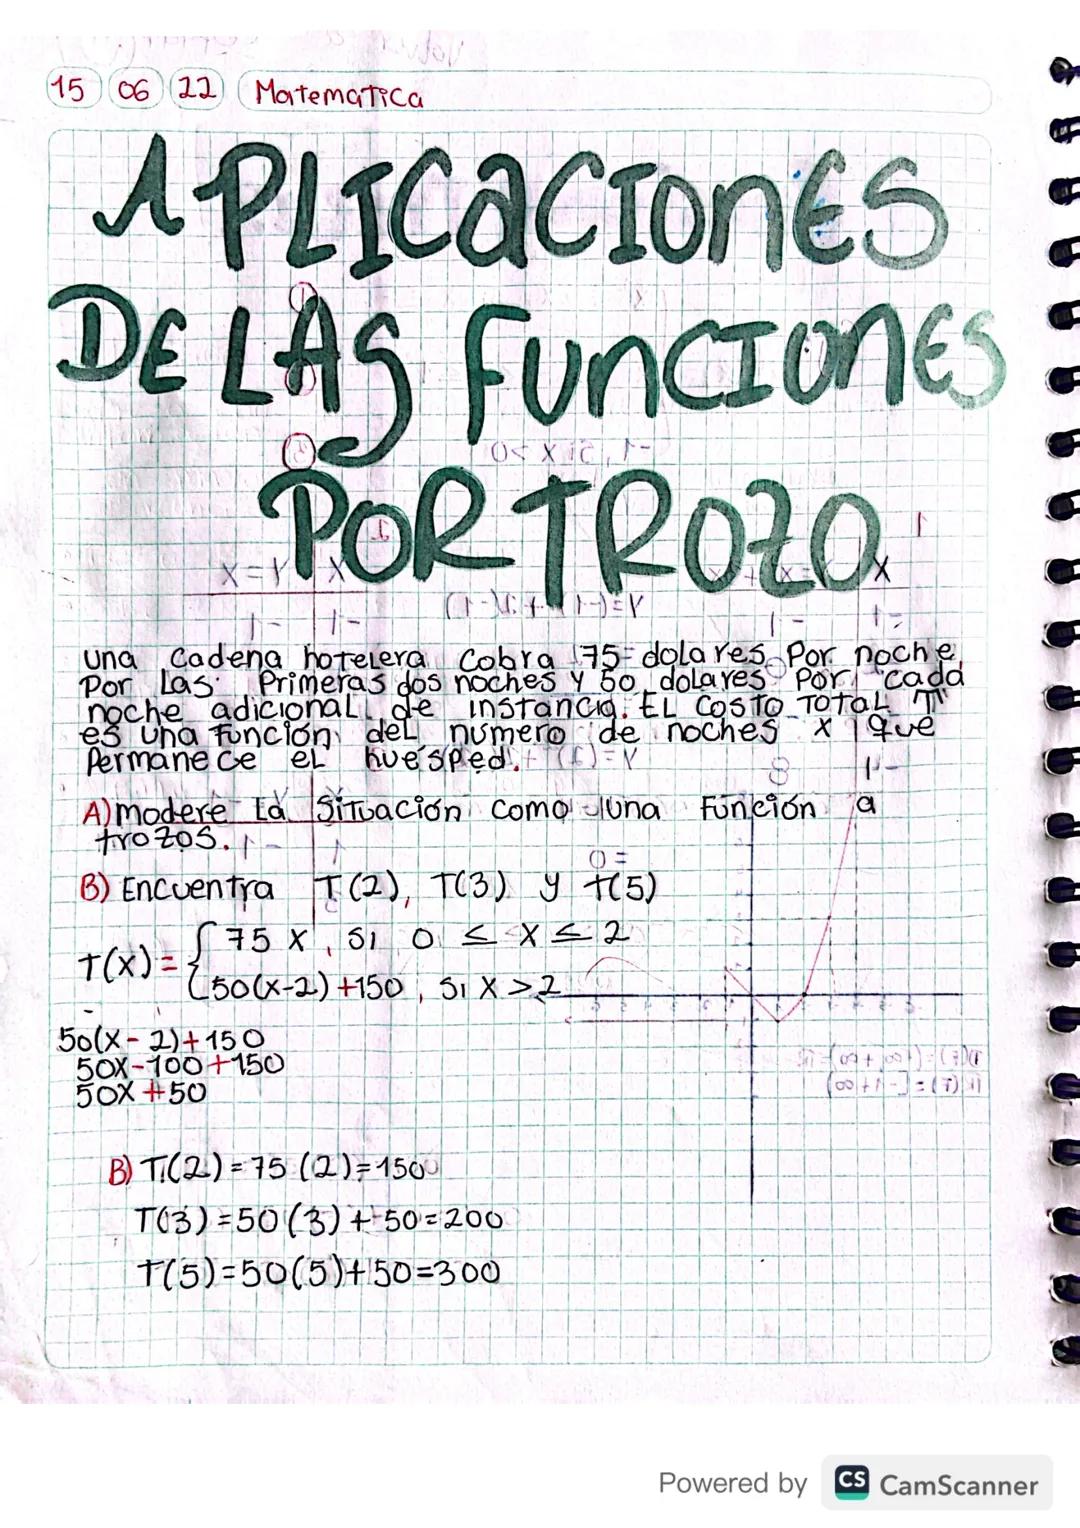 15 06 22 Matematica
APLICaCIonES
DE LAS FunCIonES
POR TROZO
una cadena hotelera cobra 75 dolares Por noche
Por Las Primeras dos noches y 50 dolares Por cada
noche adicional de instancia. EL COSTO TOTAL T
es una función del numero de noches x que
Permanece el huésped.
A) modere La Situación como una Función a
trozos.
B) Encuentra T(2), T(3) y T(5)
T(x) = { 75 x , si 0 ≤ x ≤ 2
50(x-2)+150 , si x > 2
50(x-2)+150
50x-100+150
50x+50
B) T(2)=75(2)=150
T(3)=50(3)+50=200
T(5)=50(5)+50=300
Powered by CS CamScanner